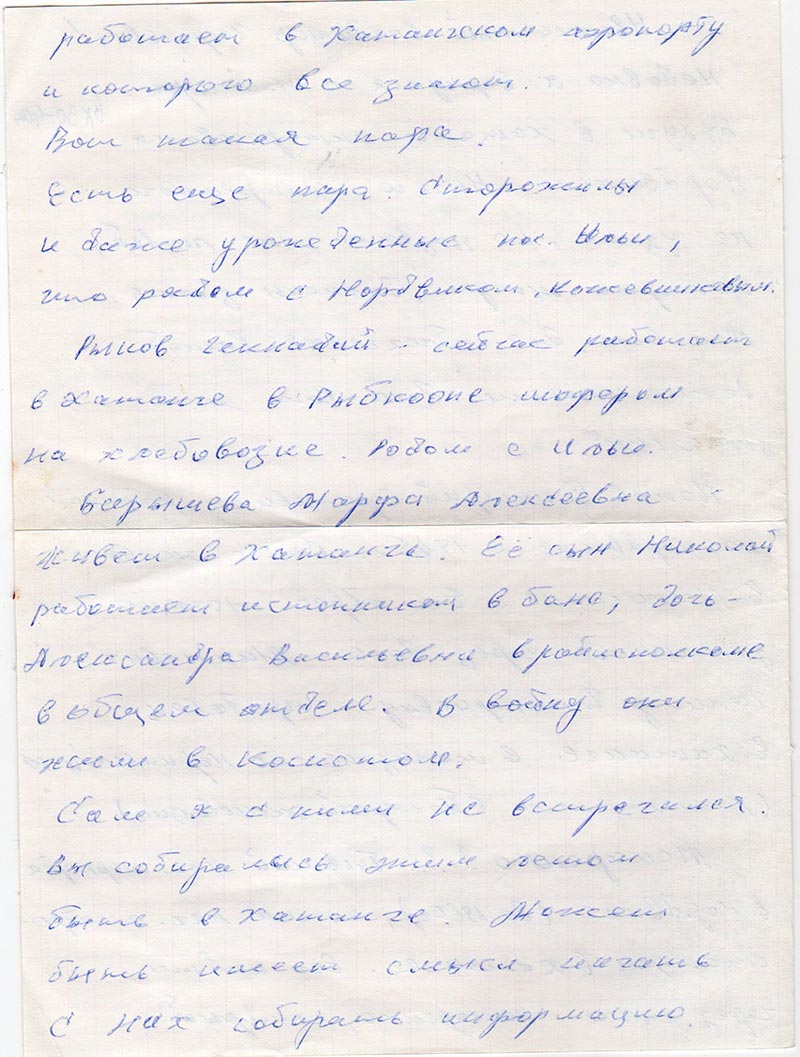 работает в Хатангском аэропорту
и которого все знают.
Вот такая пара.
Есть еще пара. Сторожилы
и даже урожденные пос. Ильи,
что рядом с Нордвиком, Кожевниковым.
Рыков Геннадий - сейчас работает
в Хатанге в Рыбкоопе шофером
на хлебовозке. Родом с Ильи.
Барышева Марфа Алексеевна -
живет в Хатанге. Её сын Николай
работает истопником в бане, дочь -
Александра Васильевна в райисполкоме
в общем отделе. В войну они
жили в Косистом.
Сам я с ними не встречался.
Вы собирались этим летом
быть в Хатанге. Может
быть имеет смысл начать
с них собирать информацию.